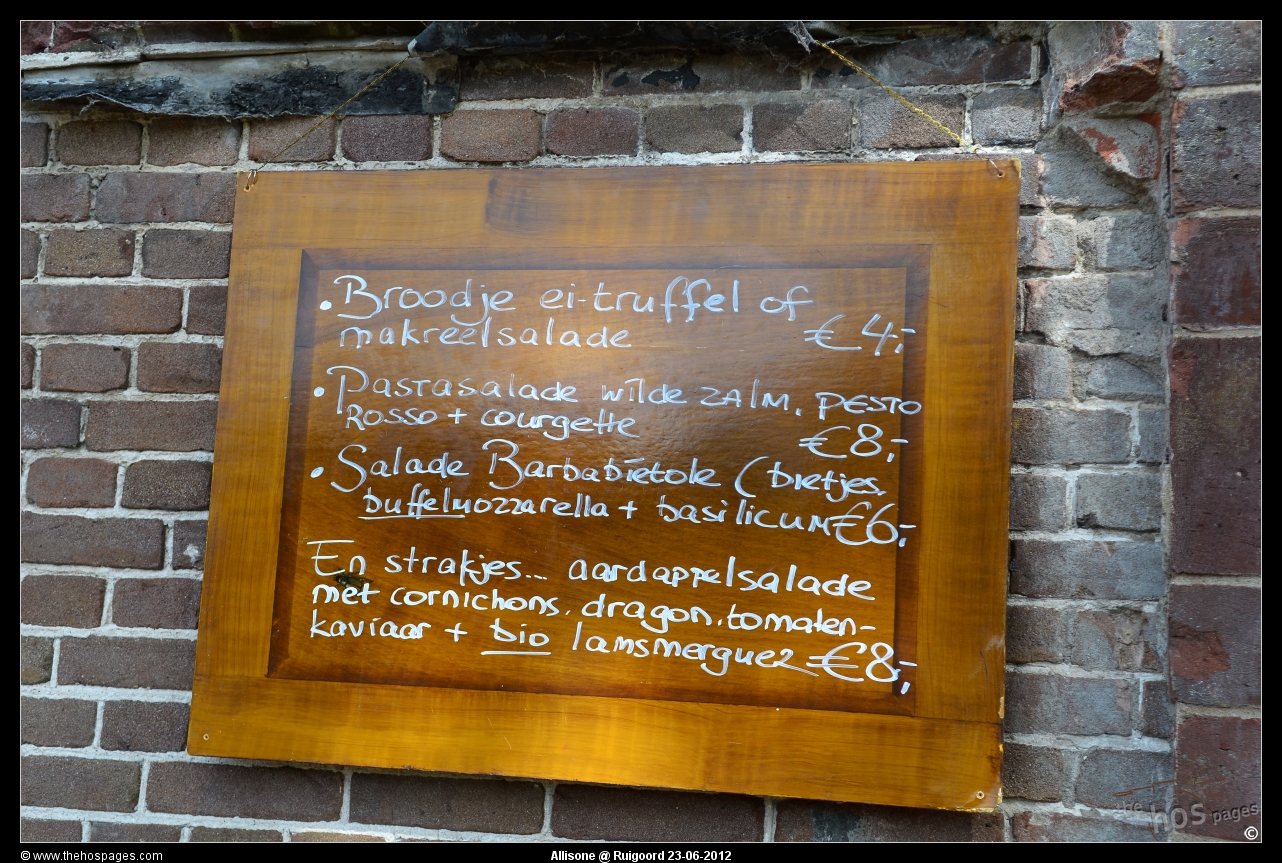 • Broodje ei-truffel of
makreelsalade €4,-
• Pastasalade wilde zalm, pesto
Rosso + courgette €8,-
• Salade Barbabiëtole (bietjes,
buffelmozzarella + basilicum €6,-
En strakjes... aardappelsalade
met cornichons, dragon, tomaten-
kaviaar + bio lamsmerguez €8,-
the hos pages
©
© www.thehospages.com
Allisone @ Ruigoord 23-06-2012